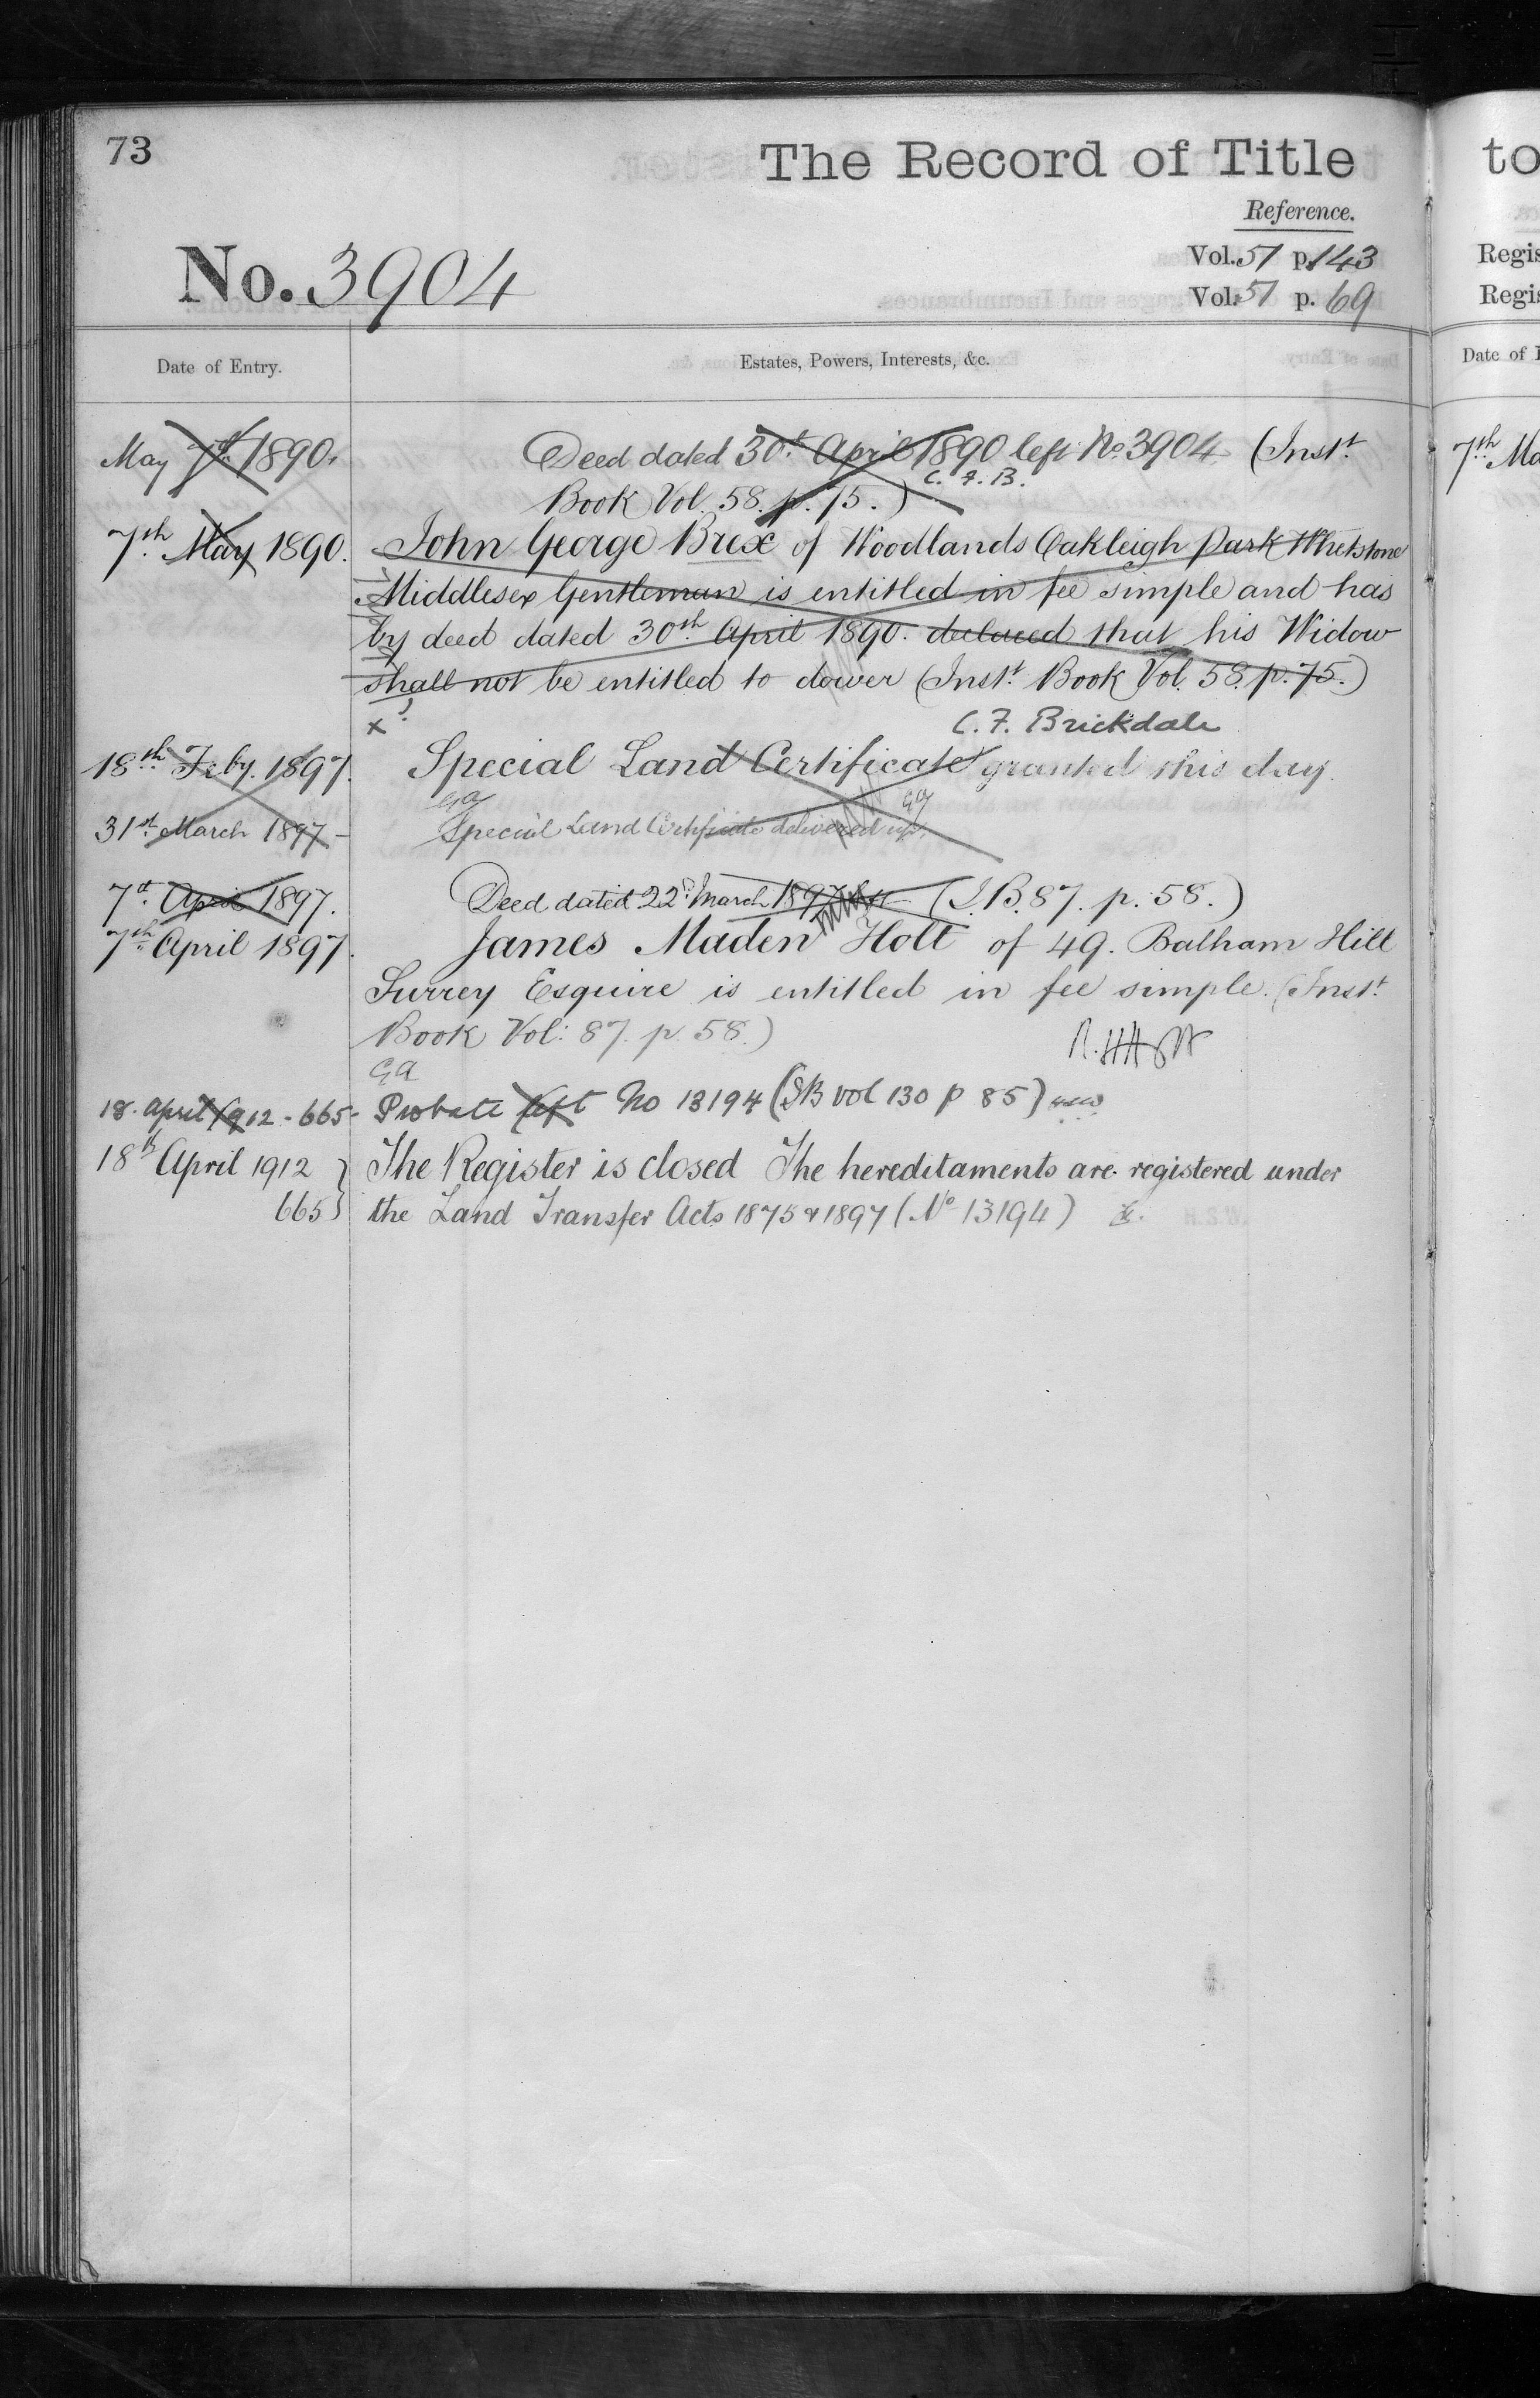 73
The Record of Title
to
Reference.
No. 3904
Vol. 51 p. 143
Vol. 51 p. 69
Regis
Regis
Date of Entry.
Estates, Powers, Interests, &c.
Date of E
May 7th 1890.
Deed dated 30th April 1890 left No. 3904 (Inst.t
C. F. B.
Book Vol. 58. p. 75.)
7th Ma
7th May 1890.
John George Brex of Woodlands Oakleigh Park Whetstone
Middlesex Gentleman is entitled in fee simple and has
by deed dated 30th April 1890. declared that his Widow
shall not be entitled to dower (Inst.t Book Vol. 58. p. 75.)
x
C. F. Brickdale
18th Feby. 1897.
Special Land Certificate granted this day.
31st March 1897 -
Special Land Certificate delivered up.
7th April 1897.
Deed dated 22d March 1897 (I.B. 87. p. 58.)
7th April 1897.
James Maden Holt of 49. Balham Hill
Surrey Esquire is entitled in fee simple. (Inst.t
Book Vol: 87. p. 58.)
18. April 1912 - 665-
Probate left No 13194 (IB vol 130 p 85)
18th April 1912 }
The Register is closed The hereditaments are registered under
665 }
the Land Transfer Acts 1875 & 1897 (No 13194)
H.S.W.